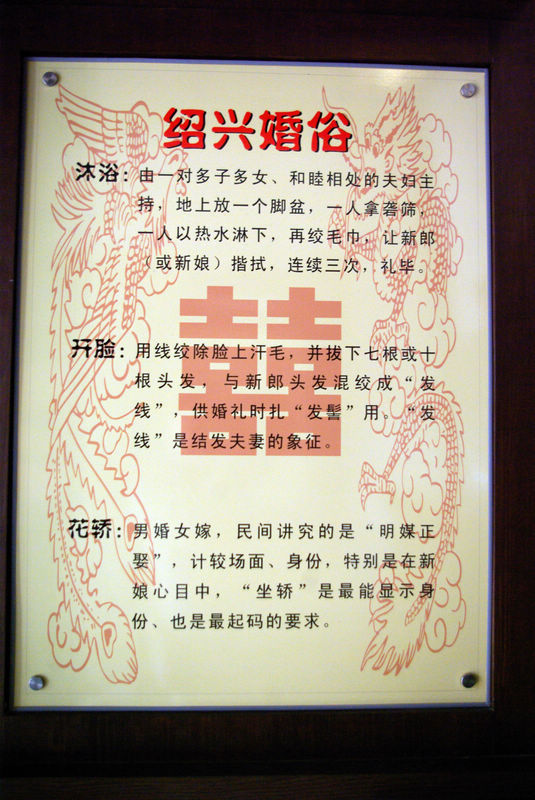 绍兴婚俗
沐浴：由一对多子多女、和睦相处的夫妇主
持，地上放一个脚盆，一人拿砻筛，
一人以热水淋下，再绞毛巾，让新郎
（或新娘）揩拭，连续三次，礼毕。
囍
开脸：用线绞除脸上汗毛，并拔下七根或十
根头发，与新郎头发混绞成“发
线”，供婚礼时扎“发髻”用。“发
线”是结发夫妻的象征。
花轿：男婚女嫁，民间讲究的是“明媒正
娶”，计较场面、身份，特别是在新
娘心目中，“坐轿”是最能显示身
份、也是最起码的要求。